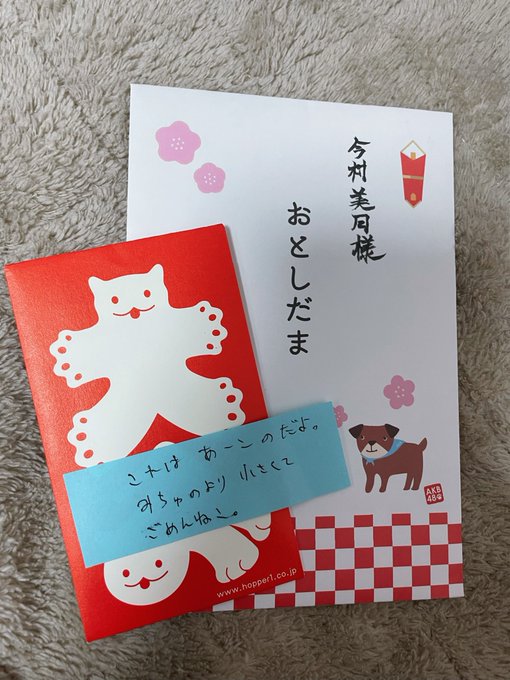 今村美月様
おとしだま
これは あーンのだよ。
みちゅのより 小さくて
ごめんねこ。
AKB
48
www.hopper1.co.jp